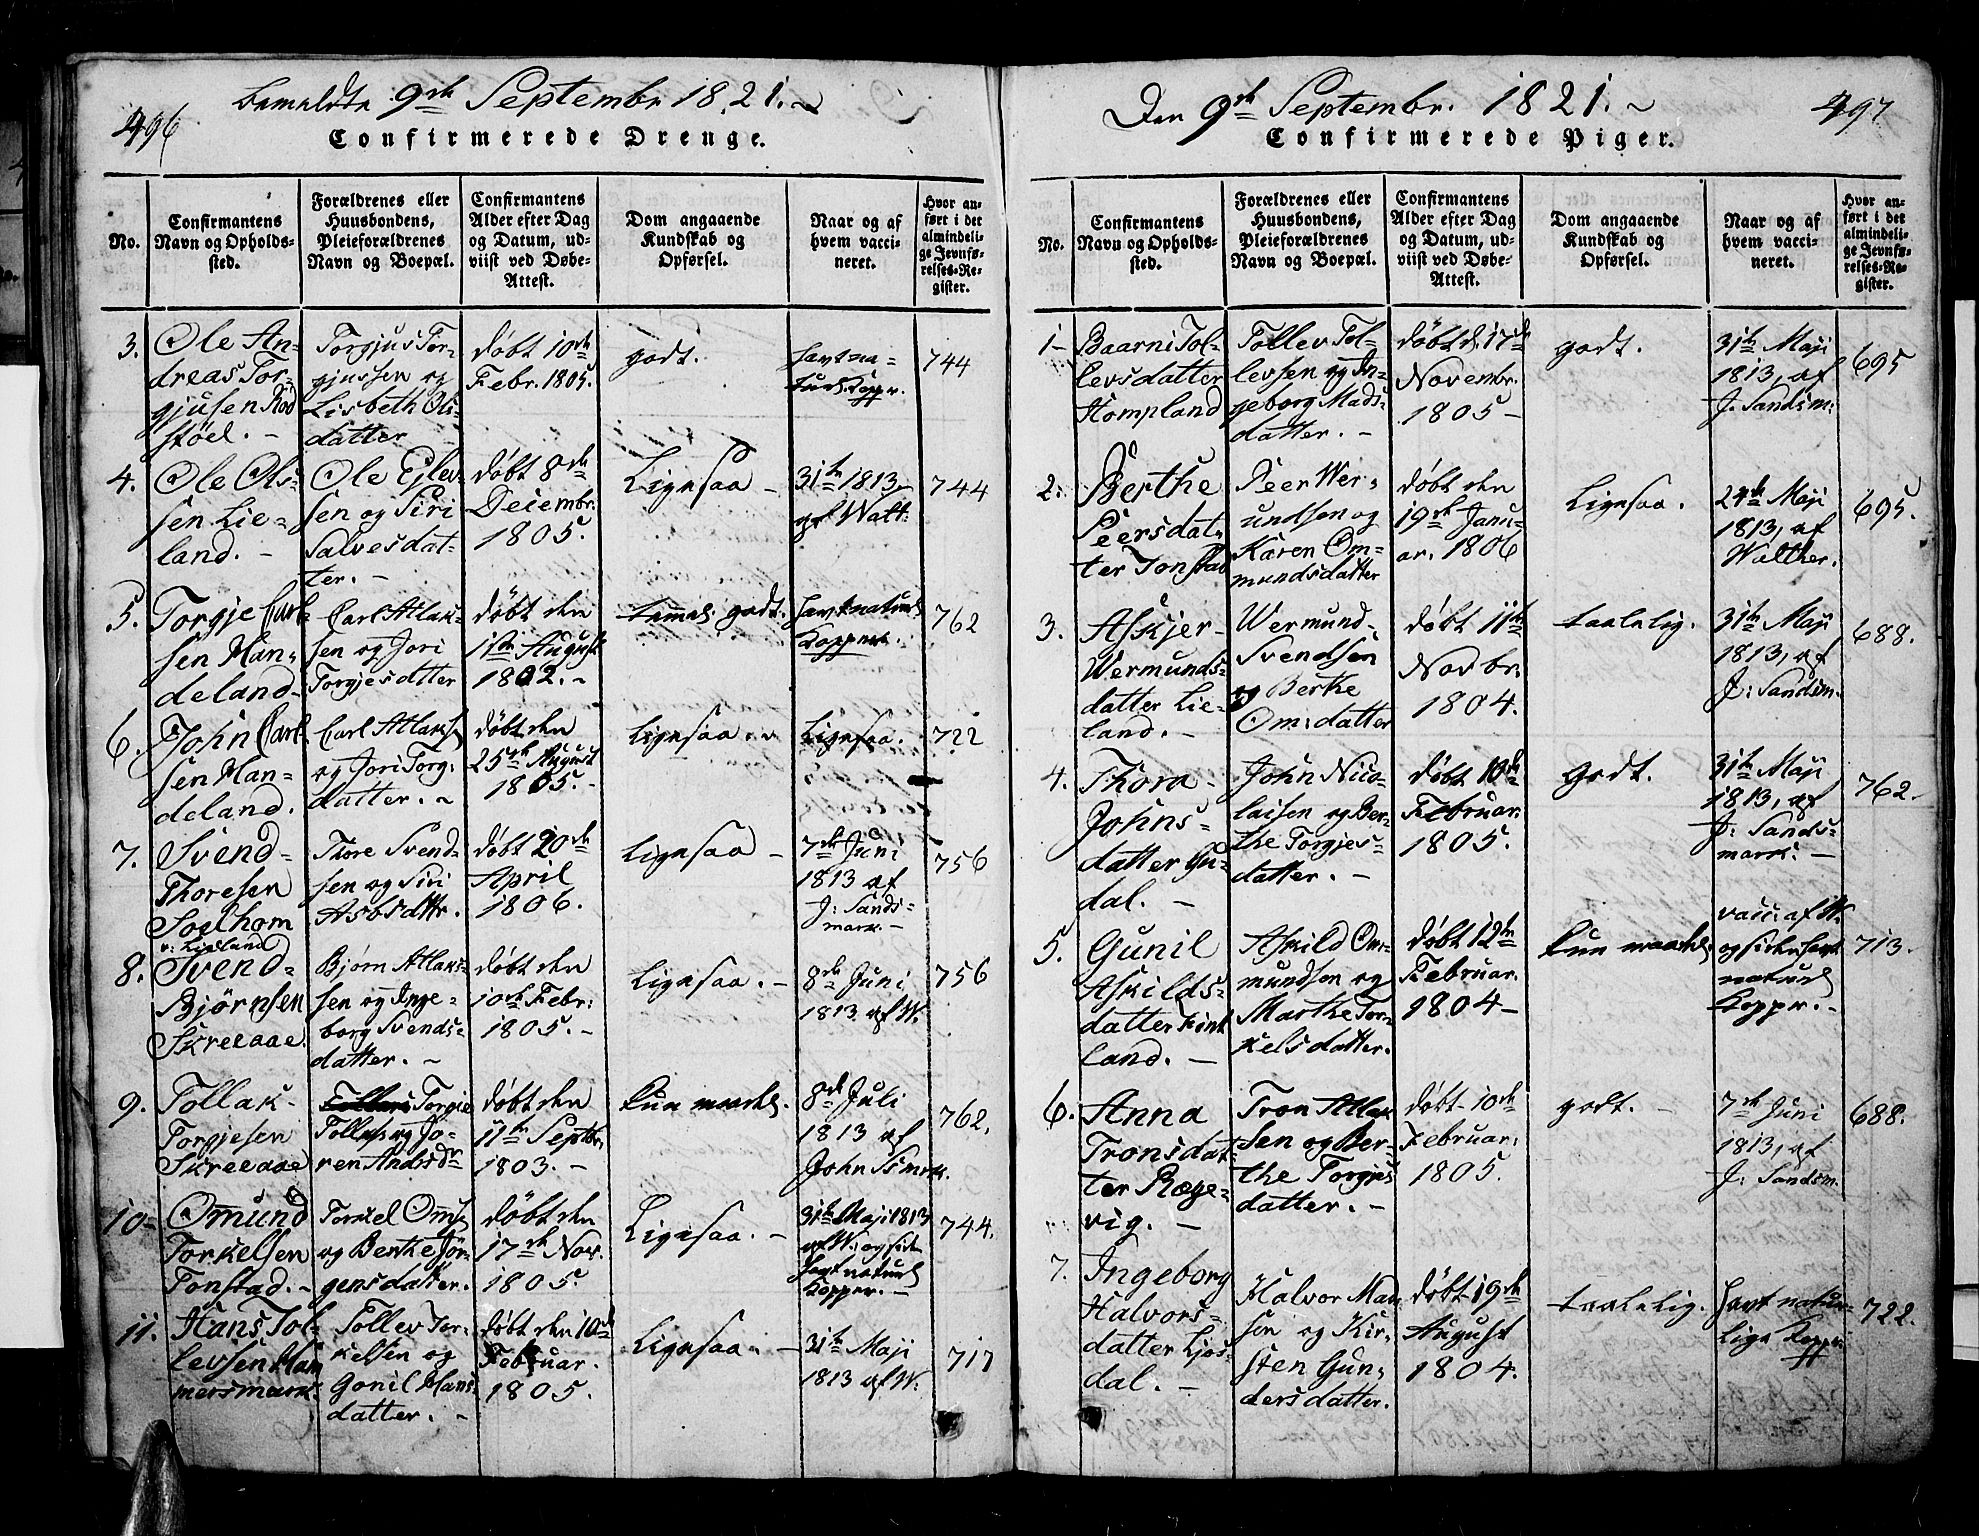 496
bemeldte 9de Septembr 1821.
Confirmerede Drenge.
No.
Confirmantens
Navn og Opholds-
sted.
Forældrenes eller
Huusbondens,
Pleieforældrenes
Navn og Boepæl.
Confirmantens
Alder efter Dag
og Datum, ud-
viist ved Døbe-
Attest.
Dom angaaende
Kundskab og
Opførsel.
Naar og af
hvem vacci-
neret.
Hvor an-
ført i det
almindeli-
ge Jevnfø-
relses-Re-
gister.
3.
Ole An-
dreas Tor-
gjusen Rød
støel. -
Torgjus Tor-
gjussen og
Lisbeth Oli-
datter
døbt 10de
Febr. 1805.
godt.
havt na-
turl. Kopper.
744
4.
Ole Ols-
sen Lie-
land. -
Ole Ejlev-
sen og Siri
Salvesdat-
ter. -
døbt 8de
Deiembr.
1805.
Ligesaa -
31te 1813
af Walt:
744
5.
Torgje Carl-
sen Han-
deland-
Carl Atlak-
sen og Jori
Torgjesdatter
døbt den
1802. -
godt.
havt naturl.
Kopper.
762
6.
John Carl-
sen Han-
deland.
Carl Atlaks
og Jori Torg:
datter. ~
døbt den
25de August
1805. -
Ligesaa
Ligesaa.
722
7.
Svend-
Thoresen
Soelhom
v: Lieland
Thore Svend-
sen og Siri
Asbsdttr.
døbt 20de
April
1806.
Ligesaa -
7de Juni
1813 af
J: Sands-
mark. -
756
8.
Svend-
Bjørnsen
Skreeaae
Bjørn Atlaks-
sen og Inge-
borg Svends-
datter. ~
døbt den
10de Febr:
1805. -
Ligesaa. -
8de Juni
1813 af W.
756
9.
Tollak-
Torgjesen
Skreeaae
Torgje
Tolless og Jo-
ren Andsdr
døbt den
11te Septbr.
1803. -
kun maadel.
8de Juli
1813 af
John Ssmrk.
762.
10-
Omund
Torkelsen
Tonstad. -
Torkel Oms
og Berthe Jør-
gensdatter.
døbt den
17de Nov.
1805.
Ligesaa. -
31te Maji 1813
af W. og sid:
havt naturl
Kopper. -
744.
11.
Hans Tol-
levsen Ham
mersmark
Tollev Tor-
kelsen og
Gonil Hans
datter. -
døbt den 10de
Februar.
1805.
Ligesaa -
31te Maji
1813 af W.
717
497
Den 9de Septembr. 1821. ~
Confirmerede Piger.
No.
Confirmantens
Navn og Opholds-
sted.
Forældrenes eller
Huusbondens,
Pleieforældrenes
Navn og Boepæl.
Confirmantens
Alder efter Dag
og Datum, ud-
viist ved Døbe-
Attest.
Dom angaaende
Kundskab og
Opførsel.
Naar og af
hvem vacci-
neret.
Hvor an-
ført i det
almindeli-
ge Jevnfø-
relses-Re-
gister.
1-
Baarni Tol-
levsdatter
Hompland
Tollev Tol-
levsen og In-
geborg Mads-
datter. -
døbt d. 17de
Novembr.
1805 -
godt.
31te Maji
1813, af
J. Sandsm:
695
2.
Berthe
Peersdat-
ter Tonstad
Peer Wer-
undsen og
Karen Om-
mundsdatter
døbt den
19de Janu-
ar. 1806
Ligesaa.
24de Maji
1813, af
Walther.
695.
3.
Askjer-
Wermunds-
datter Lie-
land. -
Wermund-
Svendsen
og Berthe
Om:datter
døbt 11te
Novbr.
1804.
taalelig.
31te Maji
1813, af
J: Sandsm.
688.
4.
Thora-
Johns-
datter Gu-
dal. -
John Nico-
laisen og Ber-
the Torgjes-
datter. -
døbt 10de
Februar.
1805.
Godt.
31te Maji
1813, af
J: Sands-
mark: -
762.
5.
Gunil
Askilds-
datter Fint
land. -
Askild Om-
mundsen og
Marthe Tor-
kelsdatter.
døbt 12te
Februar.
1804 -
kun maadel.
vacc: af W.
og siden havt
naturl
Kopper. -
713.
6.
Anna
Tronsdat-
ter Ræge-
vig. -
Tron Atlak
sen og Ber-
the Torgjes
datter. -
døbt 10de
Februar.
1805.
godt. -
7de Juni
1813, af
J: Sandsm.
688.
7.
Ingeborg
Halvors-
datter Ljos-
dal. -
Halvor Mad
sen og Kir-
sten Gun-
dersdatter.
døbt 19de
August
1804.
taalelig.
havt natur-
lige Kopper.
722.